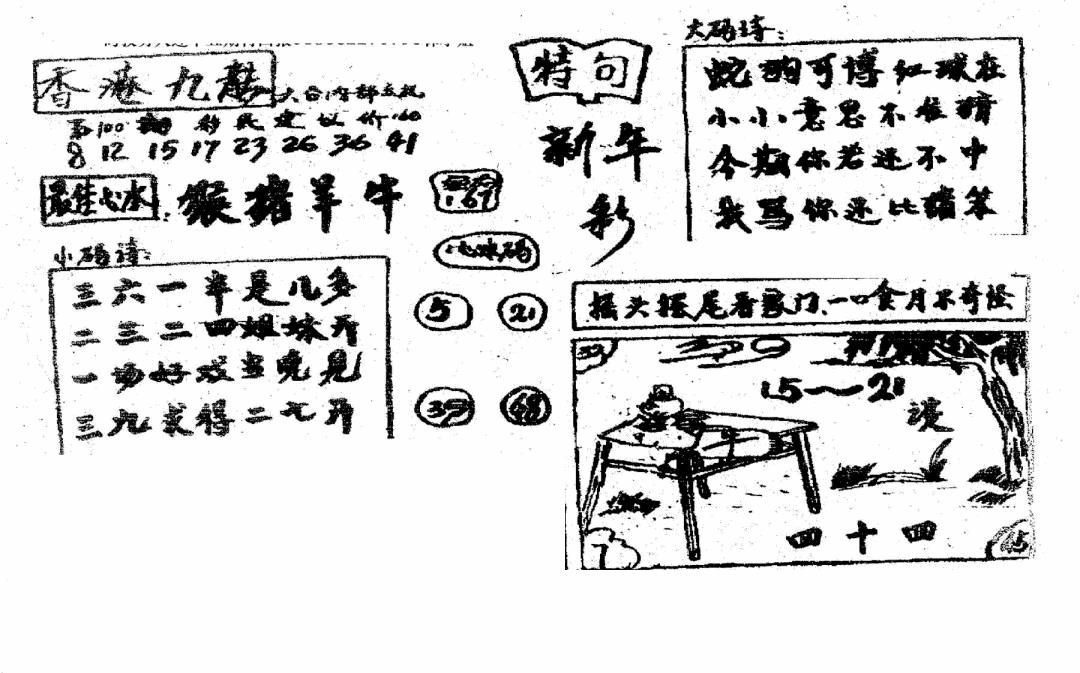 香港九龍
8 12 15 17 23 26 36 41
最佳心水
猴猪羊牛
小码诗:
三六一半是几多
二三二四姐妹开
一场好戏当晚见
三九求得二七开
心水码
5 21
39 48
特句
新年
彩
大码诗:
蛇狗可博红球在
小小意思不难猜
今期你若还不中
我骂你还比猪笨
摇头摆尾看家门、一口食月不奇怪
15〜21
四十四
7
45